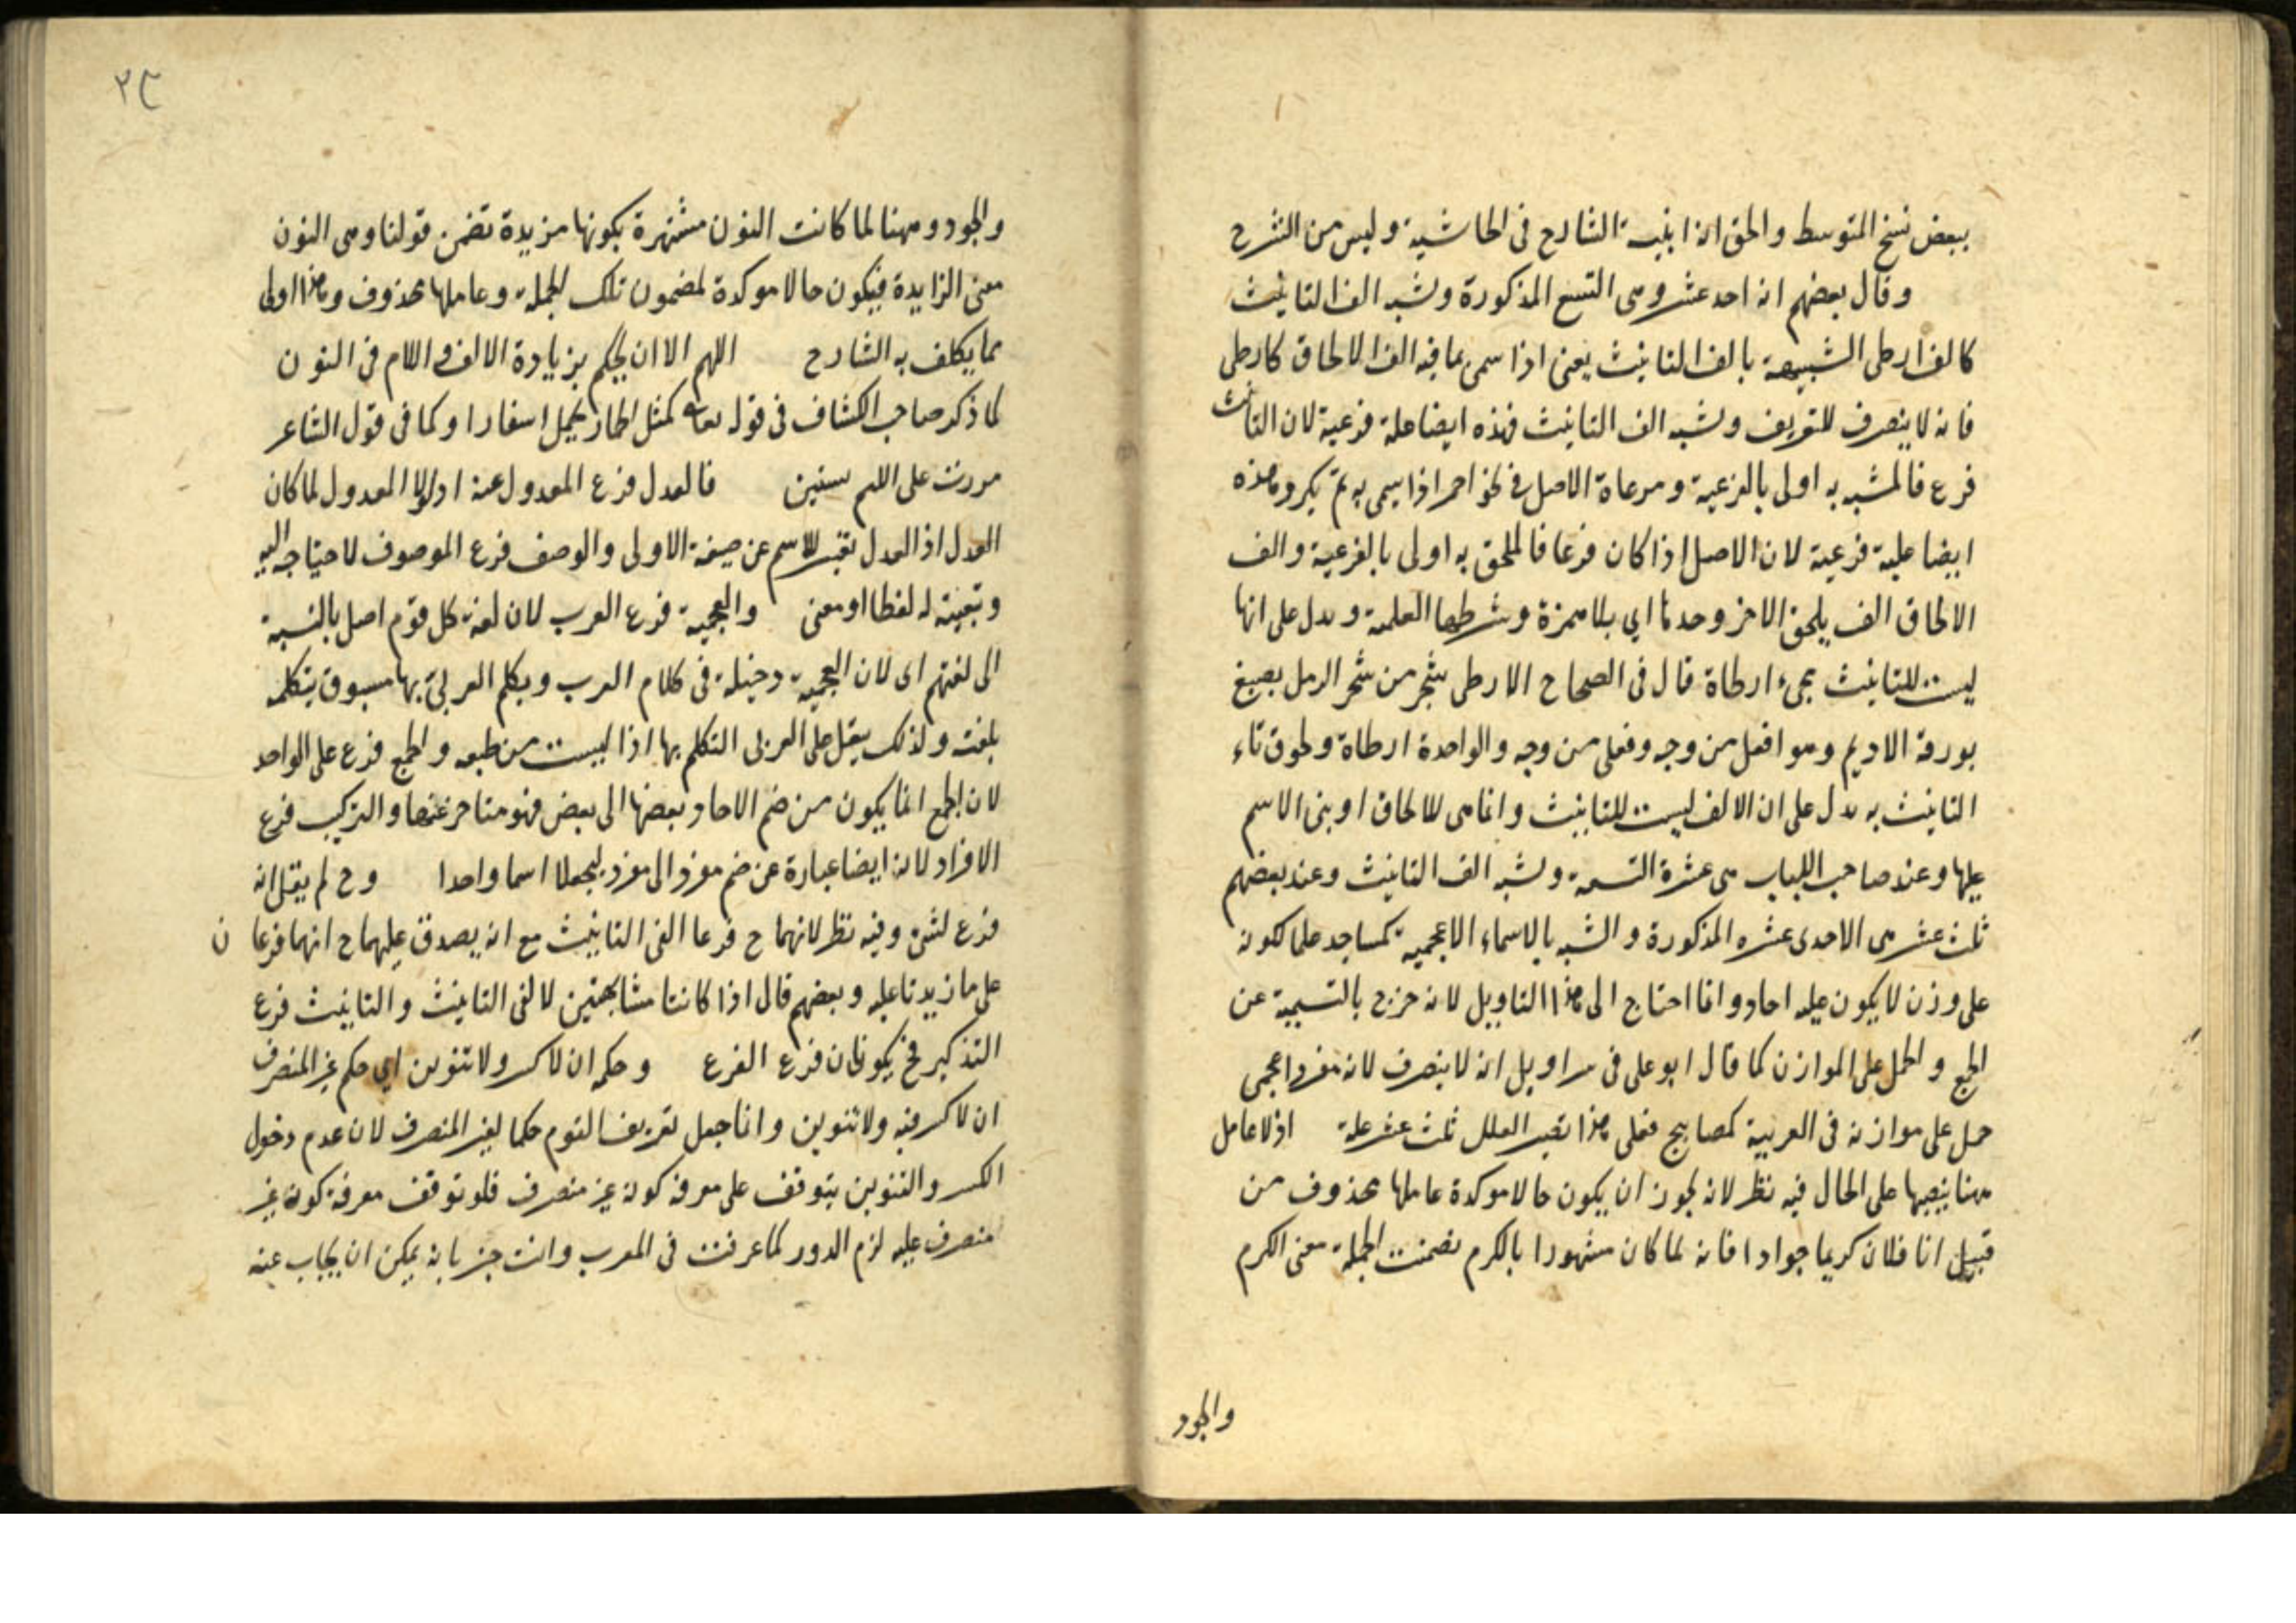 ببعض نسخ المتوسط والحق انه اثبته الشارح فى الحاشية وليس من الشرح
وقال بعضهم انه احد عشر وهى التسع المذكورة وشبه الف التانيث
كالف ارطى الشبيهة بالف التانيث يعنى اذا سمى بما فيه الف الالحاق كارطى
فانه لا ينصرف للتعريف وشبه الف التانيث فهذه ايضا علة فرعية لان التانيث
فرع فالمشبه به اولى بالفرعية ومرعاة الاصل فى نحو احمر اذا سمى به ثم نكر وهذه
ايضا علية فرعية لان الاصل اذا كان فرعا فالملحق به اولى بالفرعية والف
الالحاق الف يلحق الاخر وحدها اي بلا همزة وشرطها العلمية ويدل على انها
ليست للتانيث مجىء ارطاة قال فى الصحاح الارطى شجر من شجر الرمل يصبغ
بورقه الاديم وهو افعل من وجه وفعلى من وجه والواحدة ارطاة ولحوق تاء
التانيث به يدل على ان الالف ليست للتانيث وانما هى للالحاق او بنى الاسم
عليها وعند صاحب اللباب هى عشرة التسعة وشبه الف التانيث وعند بعضهم
ثلث عشر هى الاحدى عشره المذكورة والشبه بالاسماء الاعجمية كمساجد علما لكونه
على وزن لا يكون عليه احاد وانما احتاج الى هذا التاويل لانه خرج بالتسمية عن
الجمع والحمل على الموازن كما قال ابو على فى سراويل انه لا ينصرف لانه مفرد اعجمى
حمل على موازنه فى العربية كمصابيح فعلى هذا تصير العلل ثلث عشر علة اذ لا عامل
ههنا ينصبها على الحال فيه نظر لانه يجوز ان يكون حالا موكدة عاملها محذوف من
قبيل انا فلان كريما جوادا فانه لما كان مشهورا بالكرم تضمنت الجملة معنى الكرم
والجود
٢٣
والجود وههنا لما كانت النون مشتهرة بكونها مزيدة تضمن قولنا وهى النون
معنى الزايدة فيكون حالا موكدة لمضمون تلك الجملة وعاملها محذوف وهذا اولى
مما يكلف به الشارح اللهم الا ان يحكم بزيادة الالف واللام فى النون
كما ذكر صاحب الكشاف فى قوله تعالى كمثل الحمار يحمل اسفارا وكما فى قول الشاعر
مررت على اللئيم سنين فالعدل فرع المعدول عنه اذ لولا المعدول لما كان
العدل اذ العدل تغير للاسم عن صيغته الاولى والوصف فرع الموصوف لاحتياجه اليه
وتبعيته له لفظا او معنى والعجمية فرع العرب لان لغة كل قوم اصل بالنسبة
الى لغتهم اى لان العجمية دخيلة فى كلام العرب ويكلم العربى بها مسبوق بتكلمه
بلغته ولذلك يثقل على العربى التكلم بها اذا ليست من طبعه والجمع فرع على الواحد
لان الجمع انما يكون من ضم الاحاد بعضها الى بعض فهو متاخر عنها والتركيب فرع
الافراد لانه ايضا عبارة عن ضم مفرد الى مفرد ليجعلا اسما واحدا وح لم يقل انه
فرع لشىء وفيه نظر لانهما ح فرعا الفى التانيث مع انه يصدق عليهما ح انهما فرعان
على ما زيدتا عليه وبعضهم قال اذا كانتا مشابهتين لالفى التانيث والتانيث فرع
التذكير فح يكونان فرع الفرع وحكمه ان لا كسر ولا تنوين اي حكم غير المنصرف
ان لا كسر فيه ولا تنوين وانما جعل تعريف القوم حكما لغير المنصرف لان عدم دخول
الكسر والتنوين يتوقف على معرفة كونه غير منصرف فلو توقف معرفة كونه غير
منصرف عليه لزم الدور كما عرفت فى المعرب وانت خبير بانه يمكن ان يجاب عنه